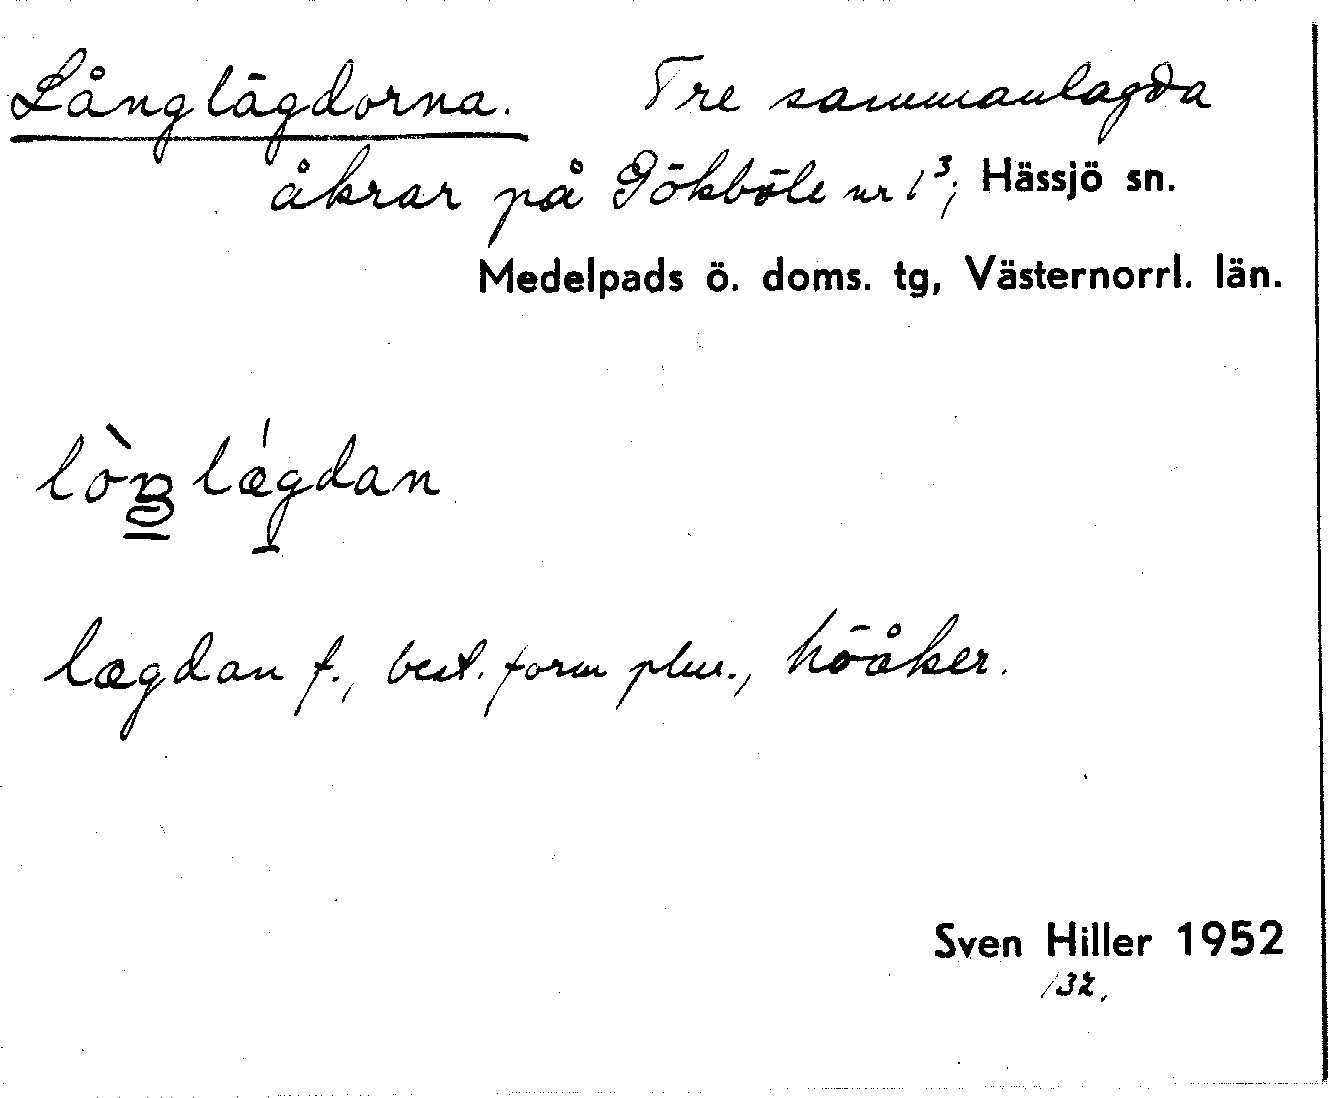 Långlägdorna. Tre sammanlagda
åkrar på Gökböle nr 1³, Hässjö sn.
Medelpads ö. doms. tg, Västernorrl. län.
lòŋlǽgdan
lægdan f., best. form plur., höåker.
Sven Hiller 1952
132.